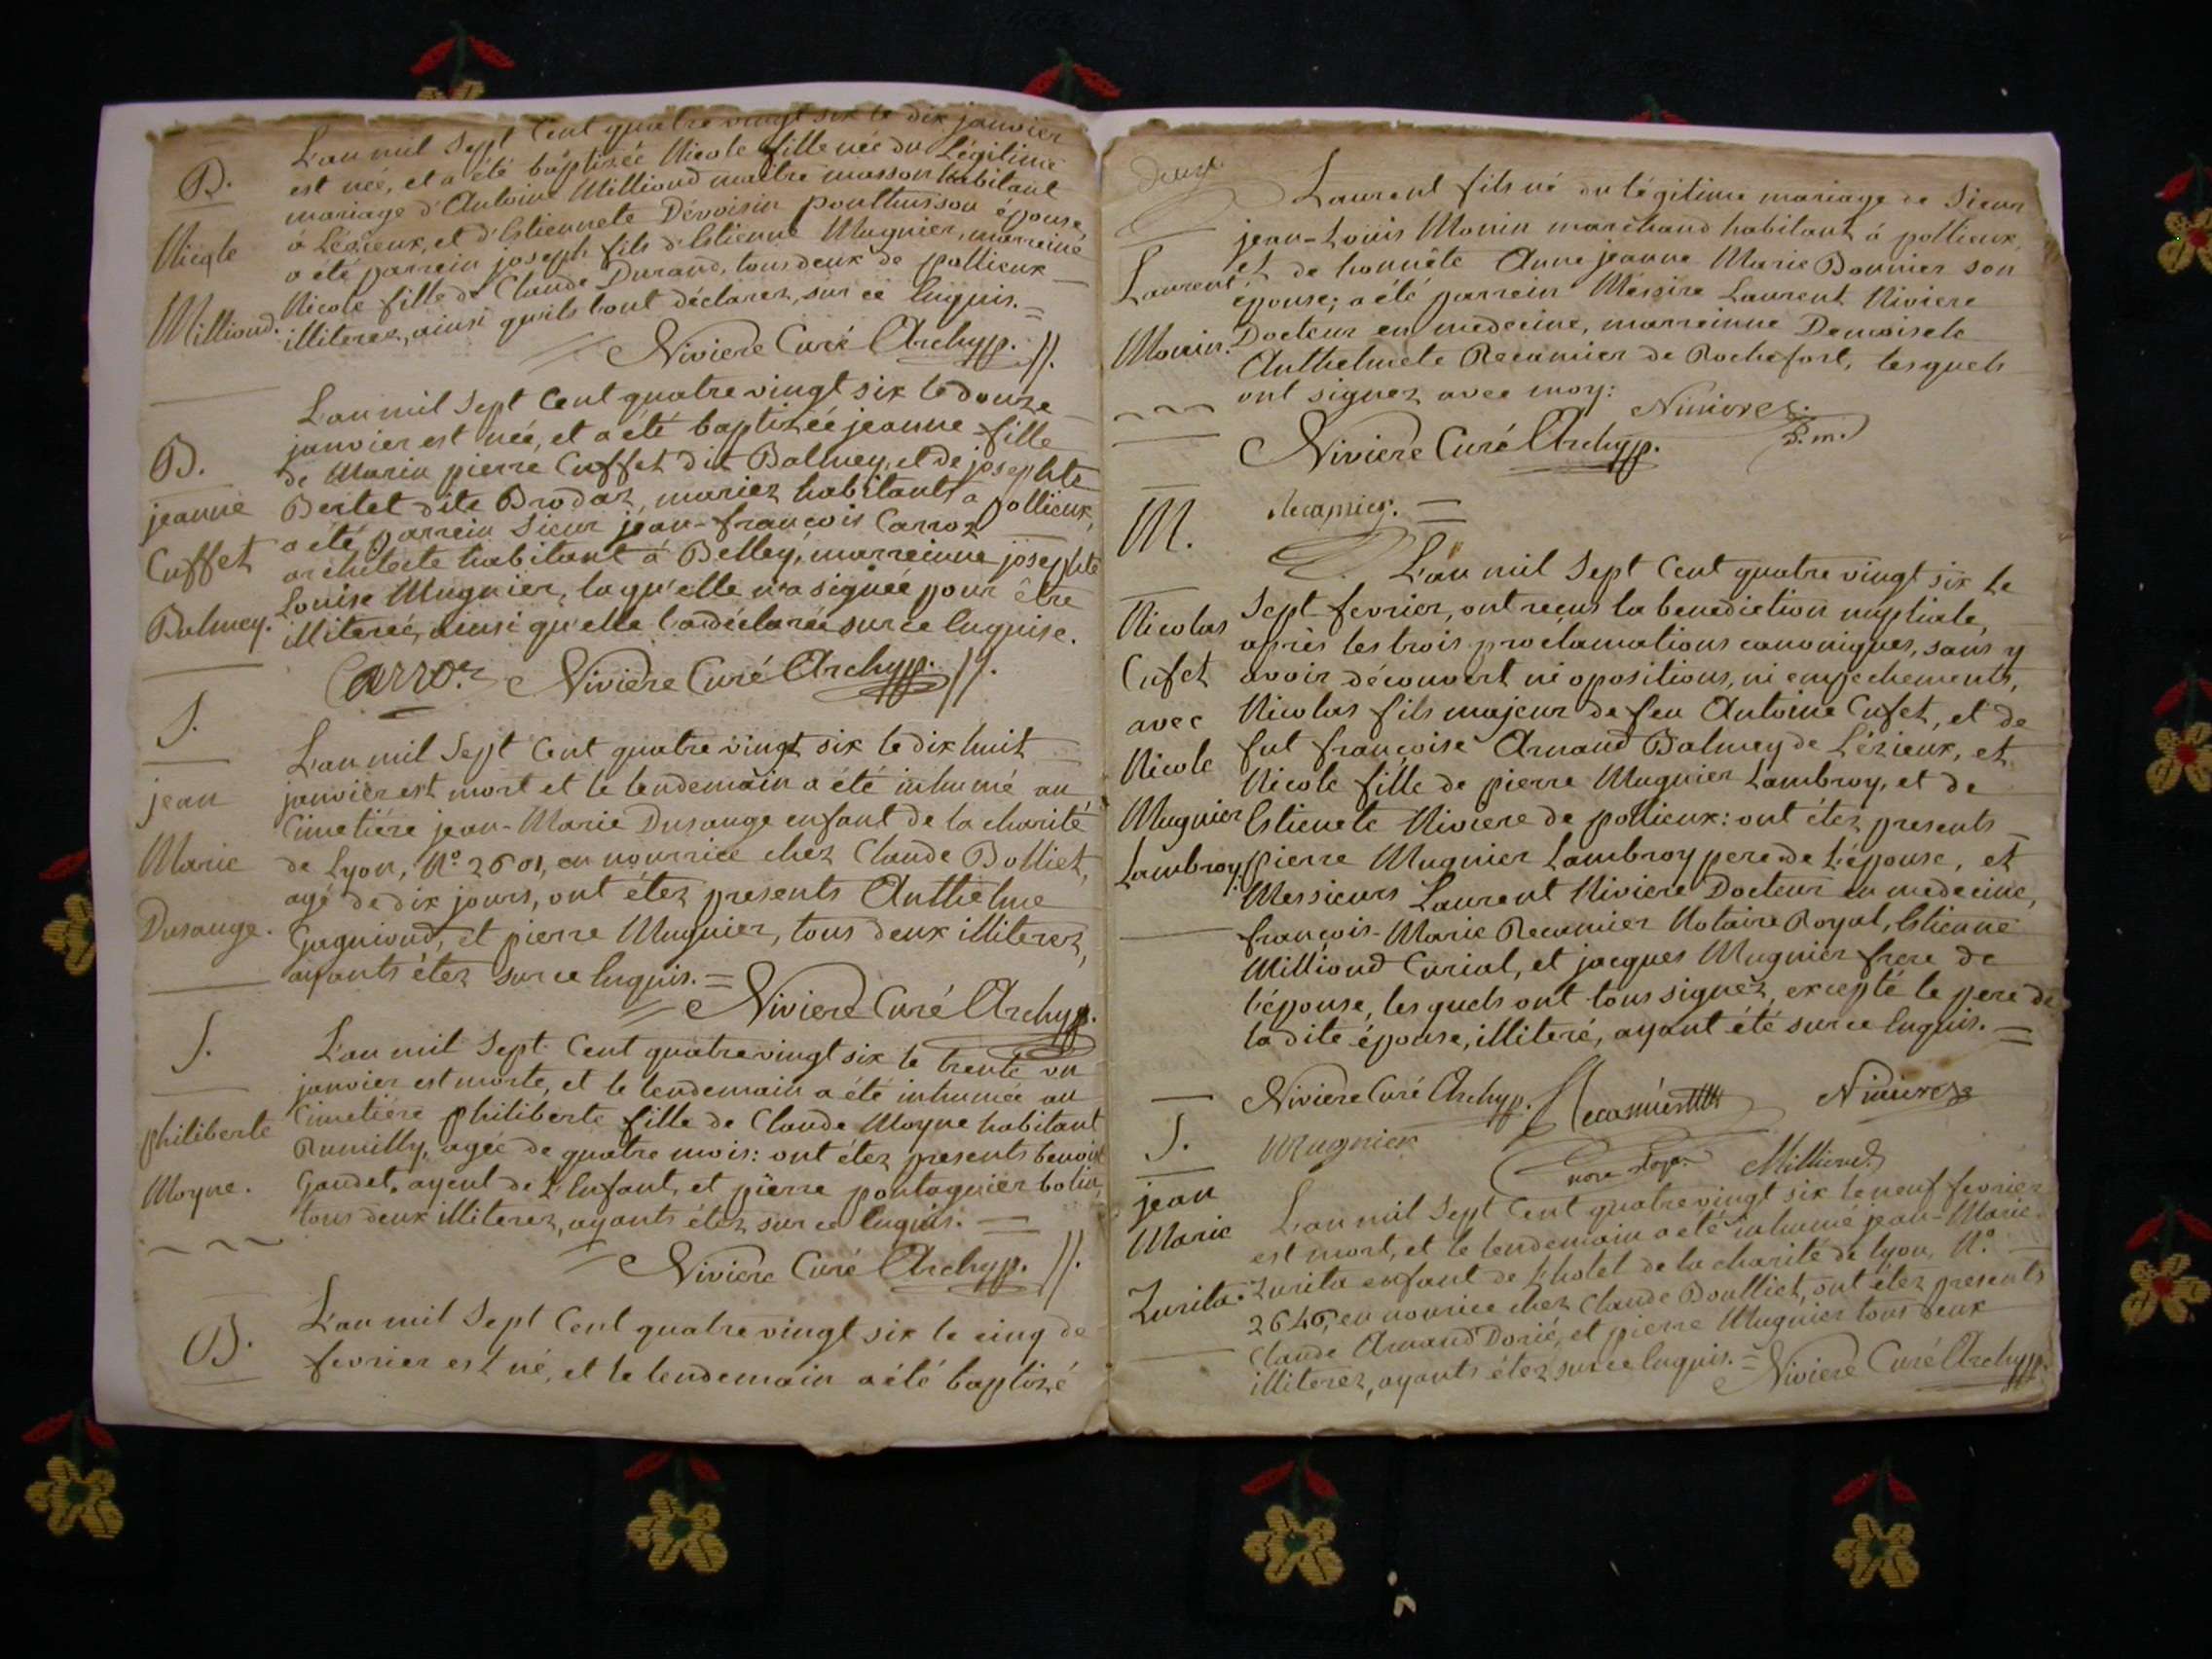 B.
Nicole
Milliond.
L'an mil Sept Cent quatre vingt six le dix janvier
est née, et a été baptizée Nicole fille née du Légitime
mariage d'Antoine Milliond maître masson habitant
à Lézieux, et d'Estiennete Dévoisin ponthusson épouse,
a été parrein joseph fils d'Estienne Mugnier, marreine
Nicole fille de Claude Durand, tous deux de pollieux
illiterez, ainsi qu'ils l'ont déclarez, sur ce Enquis. =
Niviere Curé Archyp. //.
B.
jeanne
Cuffet
Balmey.
L'an mil Sept Cent quatre vingt six le douze
janvier est née, et a été baptizée jeanne fille
de Marin pierre Cuffet dit Balmey, et de josephte
Bertet dite Brodaz, mariez habitants a pollieux,
a été parrein Sieur jean-françois Carroz
architecte habitant à Belley, marreinne josephte
Louise Mugnier, laqu'elle n'a signée pour être
illiterée, ainsi qu'elle l'a déclarée sur ce Enquise.
Carroz Niviere Curé Archyp. //.
S.
jean
Marie
Dusauge.
L'an mil Sept Cent quatre vingt six le dix huit
janvier est mort et le lendemain a été inhumé au
Cimetiére jean-Marie Dusauge enfant de la charité
de Lyon, N.º 2601, en nourrice chez Claude Bolliet,
agé de dix jours, ont étez presents Anthelme
Gagnioud, et pierre Mugnier, tous deux illiterez,
ayants étez sur ce Enquis. =
Niviere Curé Archyp.
S.
philiberte
Moyne.
L'an mil Sept Cent quatre vingt six le trente un
janvier est morte, et le lendemain a été inhumée au
Cimetiére philiberte fille de Claude Moyne habitant
Rumilly, agée de quatre mois: ont étez presents benoit
Gaudet, ayeul de L'Enfant, et pierre pontagnier bolin,
tous deux illiterez, ayants étez sur ce Enquis. =
Niviere Curé Archyp. //.
B.
L'an mil Sept Cent quatre vingt six le cinq de
fevrier est né, et le lendemain a été baptizé
deux
Laurent
Monin.
Laurent fils né du légitime mariage de Sieur
jean-Louis Monin marchand habitant à pollieux,
et de honnête Anne jeanne Marie Bonnier son
épouse; a été parrein Messire Laurent Niviere
Docteur en medecine, marreinne Demoisele
Anthelmete Recamier de Rochefort, lesquels
ont signez avec moy:
Niviere
D. m.
Niviere Curé Archyp.
Recamier. =
M.
Nicolas
Cufet
avec
Nicole
Mugnier
Lambroy.
L'an mil Sept Cent quatre vingt six le
Sept fevrier, ont reçus la benediction nuptiale,
après les trois proclamations canoniques, sans y
avoir découvert ni opositions, ni empechements,
Nicolas fils majeur de feu Antoine Cufet, et de
fut françoise Arnaud Balmey de Lézieux, et
Nicole fille de pierre Mugnier Lambroy, et de
Estienete Niviere de pollieux: ont étez presents
pierre Mugnier Lambroy pere de L'épouse, et
Messieurs Laurent Niviere Docteur en medecine,
françois-Marie Recamier Notaire Royal, Estienne
Milliond Curial, et jacques Mugnier frere de
l'épouse, les quels ont tous signez, excepté le pere de
la dite épouse, illiteré, ayant été sur ce Enquis. =
Niviere Curé Archyp. Recamier Niviere
Mugnier Milliond
S.
jean
Marie
Zurita.
L'an mil Sept Cent quatre vingt six le neuf fevrier
est mort, et le lendemain a été inhumé jean-Marie
Zurita enfant de L'hotel de la charité de lyon, N.º
2646, en nourice chez Claude Boulliet, ont étez presents
Claude Arnaud Dorié, et pierre Mugnier tous deux
illiterez, ayants étez sur ce Enquis. = Niviere Curé Archyp.